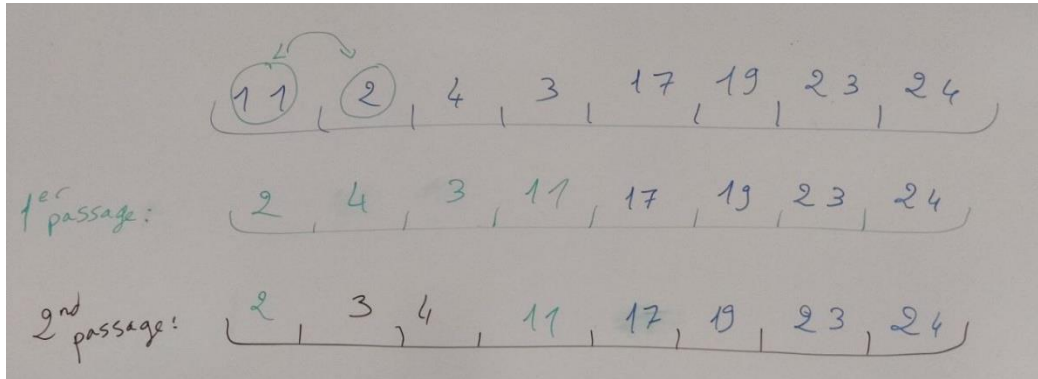 11 2 4 3 17 19 23 24
1er passage: 2 4 3 11 17 19 23 24
2nd passage: 2 3 4 11 17 19 23 24